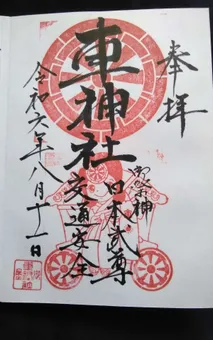 奉拝
車神社
御祭神
日本武尊
交通安全
令和六年八月十一日